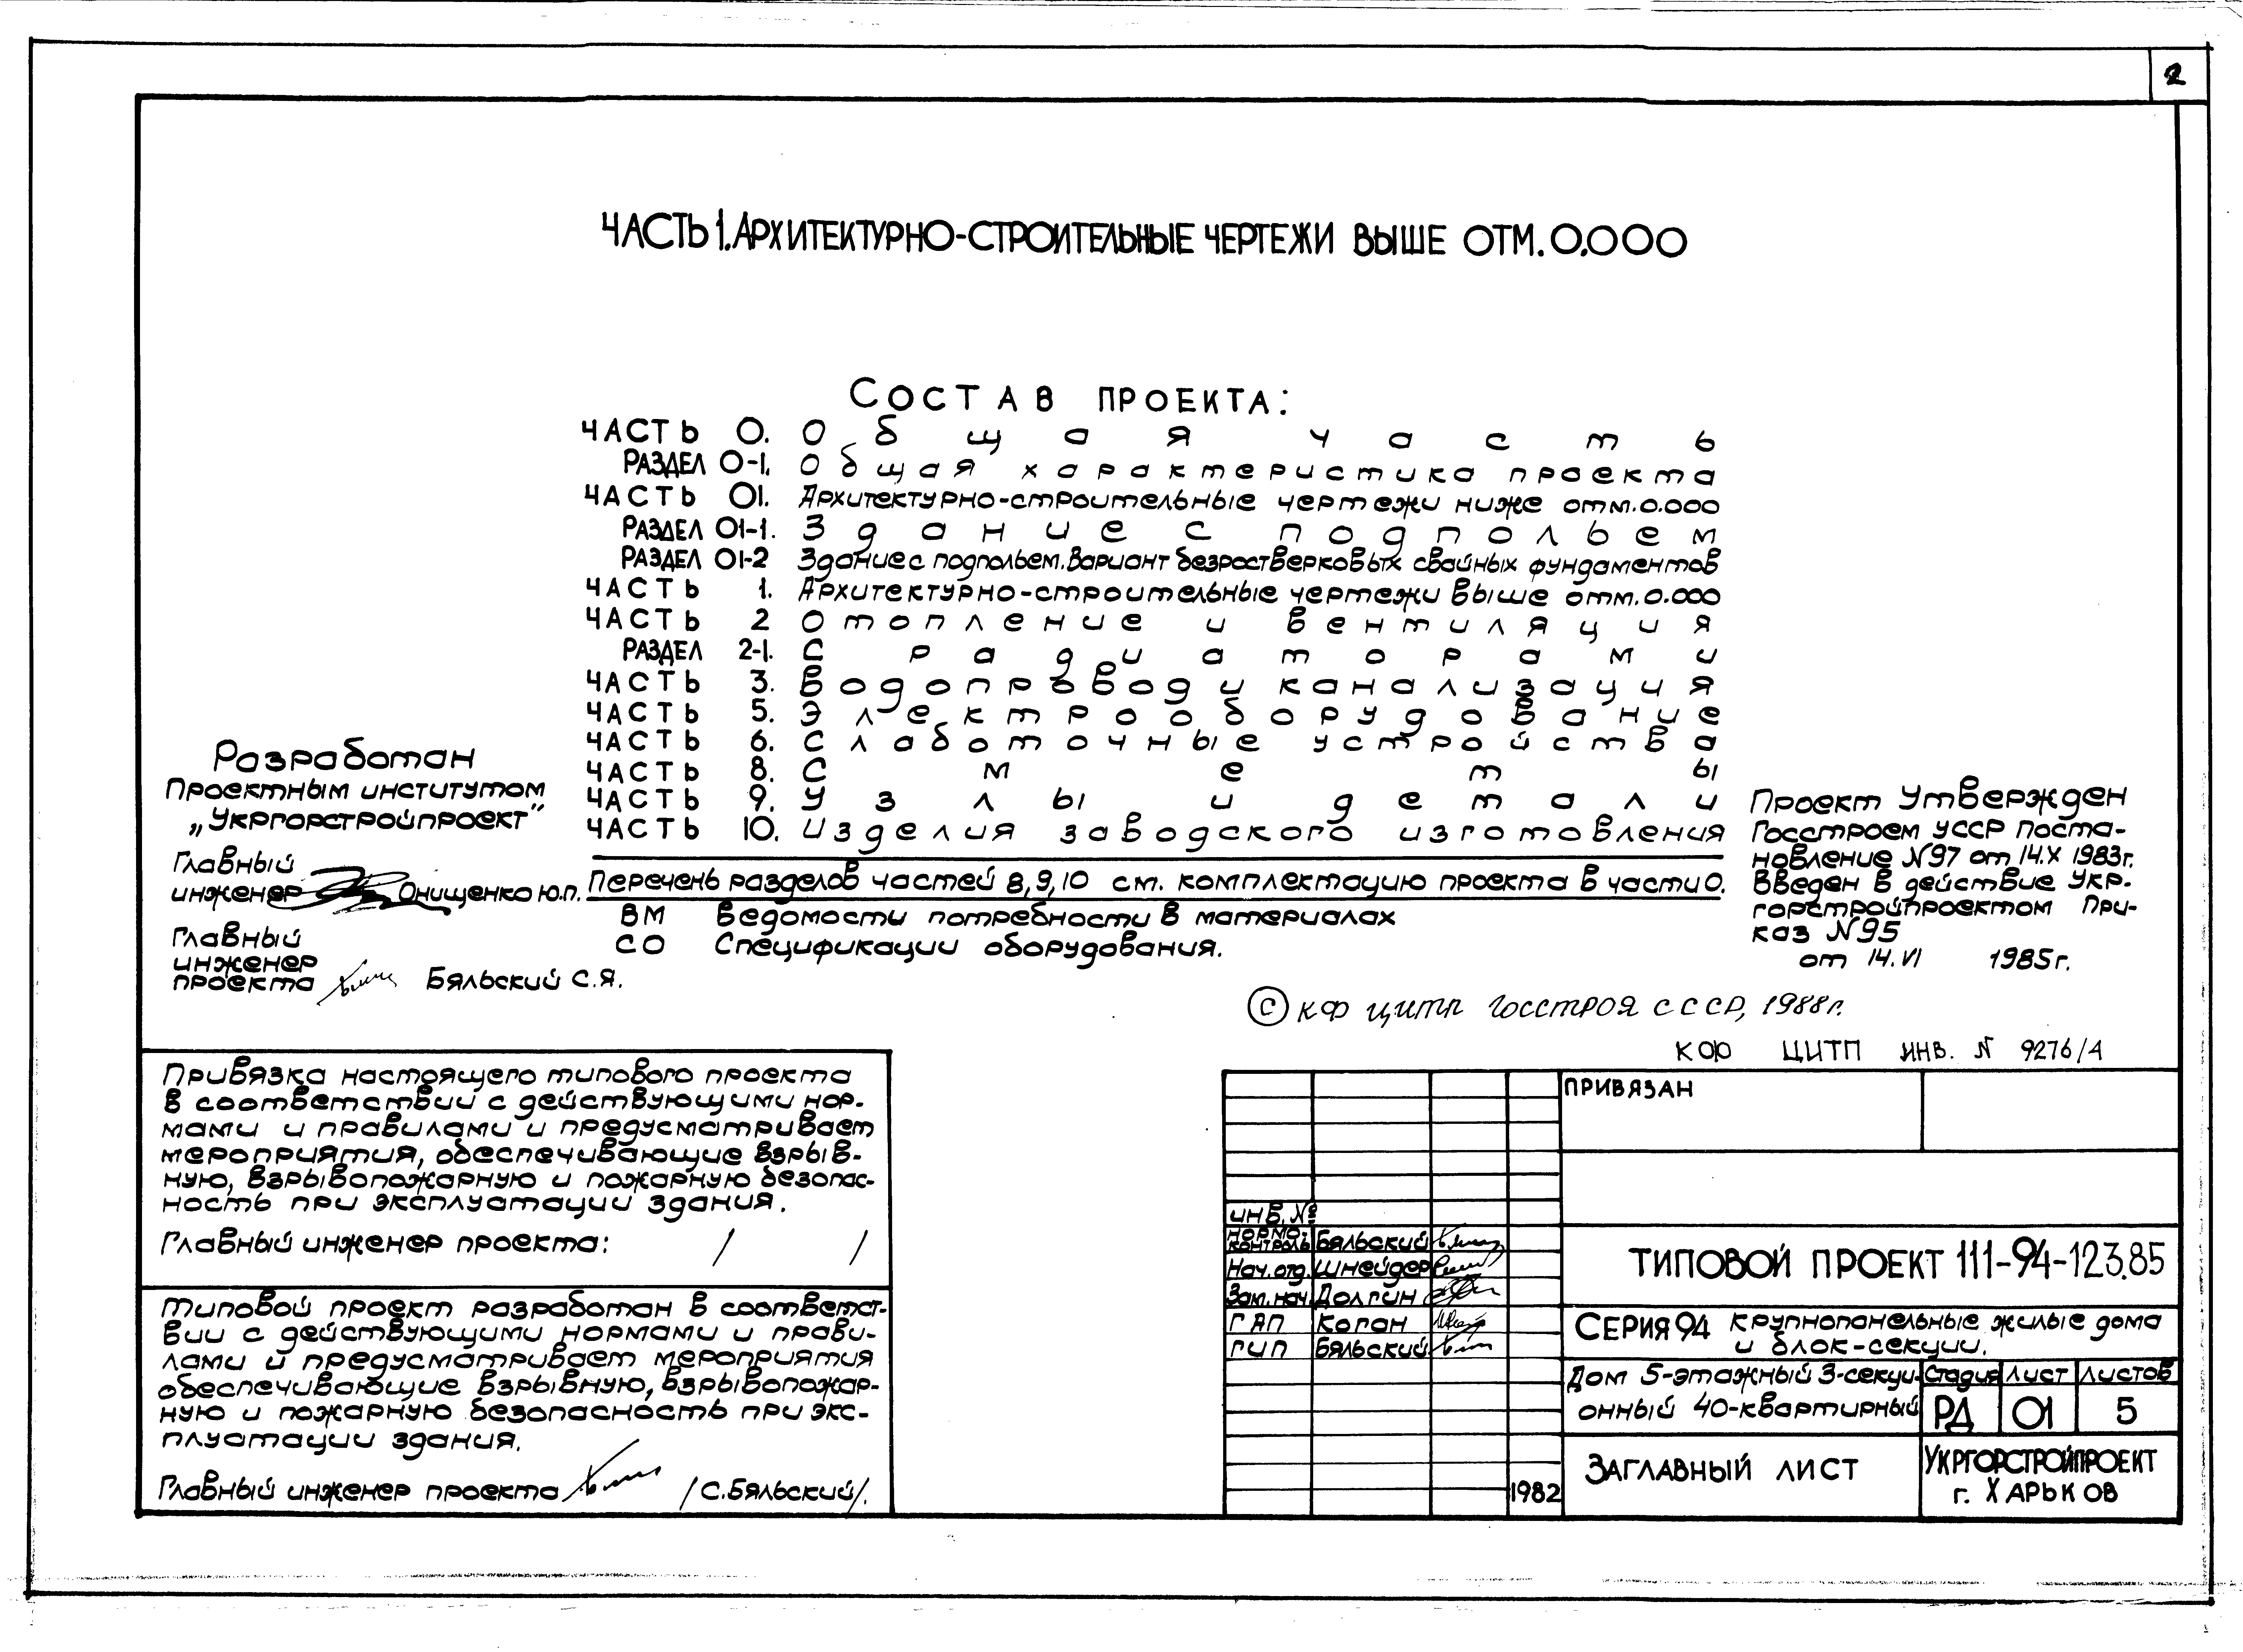 2
ЧАСТЬ 1. АРХИТЕКТУРНО-СТРОИТЕЛЬНЫЕ ЧЕРТЕЖИ ВЫШЕ ОТМ. 0.000
СОСТАВ ПРОЕКТА:
ЧАСТЬ 0. Общая часть
РАЗДЕЛ 0-1. Общая характеристика проекта
ЧАСТЬ 01. Архитектурно-строительные чертежи ниже отм. 0.000
РАЗДЕЛ 01-1. Здание с подпольем
РАЗДЕЛ 01-2 Здание с подпольем. Вариант безростверковых свайных фундаментов
ЧАСТЬ 1. Архитектурно-строительные чертежи выше отм. 0.000
ЧАСТЬ 2 Отопление и вентиляция
РАЗДЕЛ 2-1. С радиаторами
ЧАСТЬ 3. Водопровод и канализация
ЧАСТЬ 5. Электрооборудование
ЧАСТЬ 6. Слаботочные устройства
ЧАСТЬ 8. Сметы
ЧАСТЬ 9. Узлы и детали
ЧАСТЬ 10. Изделия заводского изготовления
Перечень разделов частей 8,9,10 см. комплектацию проекта в части 0.
ВМ Ведомости потребности в материалах
СО Спецификации оборудования.
Разработан
Проектным институтом
„Укргорстройпроект"
Главный
инженер Онищенко Ю.П.
Главный
инженер
проекта Бяльский С.Я.
Проект Утвержден
Госстроем УССР Поста-
новление N97 от 14.X 1983г.
Введен в действие Укр-
горстройпроектом При-
каз N95
от 14.VI 1985г.
© КФ ЦИТП ГОССТРОЯ СССР, 1988г.
КОФ ЦИТП ИНВ. N 9276/1
Привязка настоящего типового проекта
в соответствии с действующими нор-
мами и правилами и предусматривает
мероприятия, обеспечивающие взрыв-
ную, взрывопожарную и пожарную безопас-
ность при эксплуатации здания.
Главный инженер проекта: / /
Типовой проект разработан в соответст-
вии с действующими нормами и прави-
лами и предусматривает мероприятия
обеспечивающие взрывную, взрывопожар-
ную и пожарную безопасность при экс-
плуатации здания.
Главный инженер проекта /С.Бяльский/.
ПРИВЯЗАН
ИНВ. №
НОРМО-
КОНТРОЛЬ Бяльский
Нач. отд. Шнейдер
Зам. нач. Долгин
ГАП Коган
ГИП Бяльский
1982
ТИПОВОЙ ПРОЕКТ 111-94-123.85
СЕРИЯ 94 крупнопанельные жилые дома
и блок-секции.
Дом 5-этажный 3-секци-
онный 40-квартирный
Стадия Лист Листов
РД 01 5
ЗАГЛАВНЫЙ ЛИСТ
УКРГОРСТРОЙПРОЕКТ
г. ХАРЬКОВ